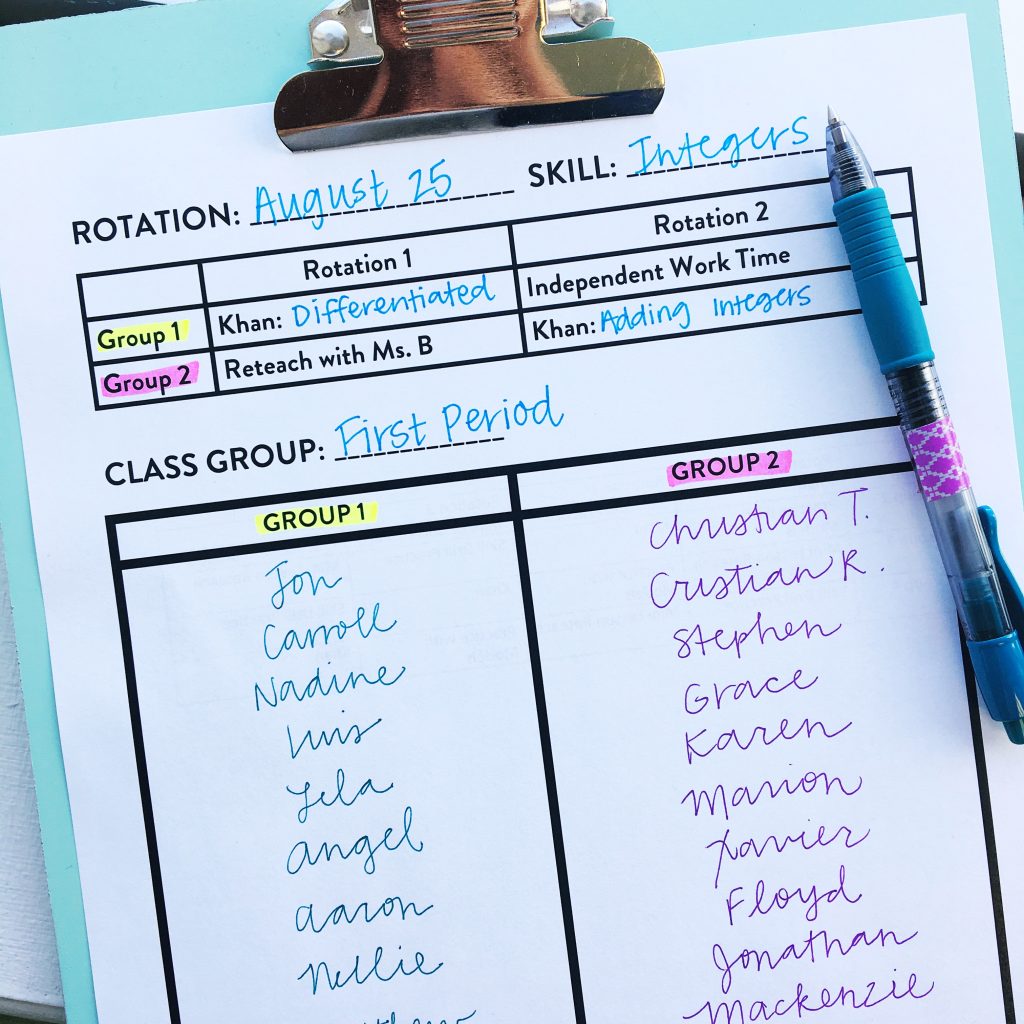 ROTATION: August 25 SKILL: Integers
Rotation 1 Rotation 2
Group 1 Khan: Differentiated Independent Work Time
Group 2 Reteach with Ms. B Khan: Adding Integers
CLASS GROUP: First Period
GROUP 1 GROUP 2
Jon Christian T.
Carroll Cristian R.
Nadine Stephen
Luis Grace
Lela Karen
Angel Marion
Aaron Xavier
Nellie Floyd
Jonathan
Mackenzie